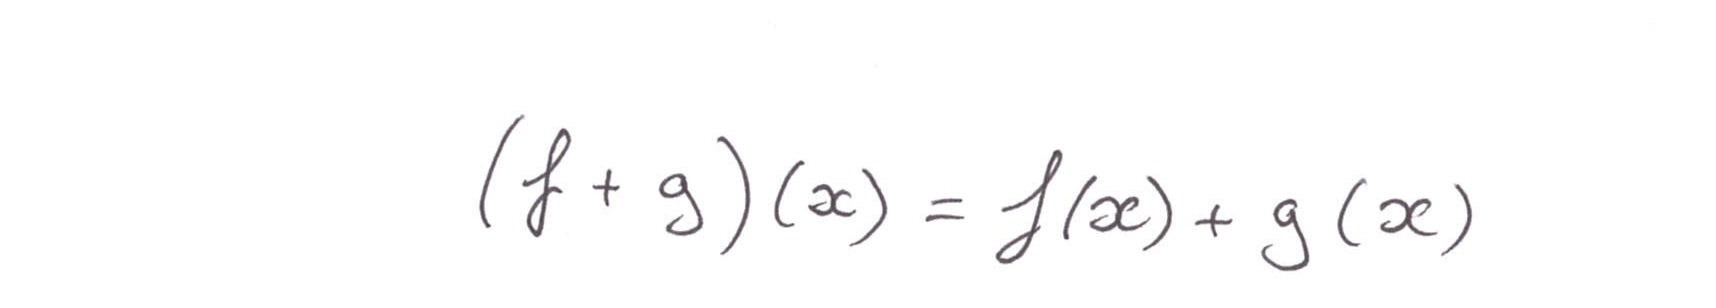 (f + g)(x) = f(x) + g(x)